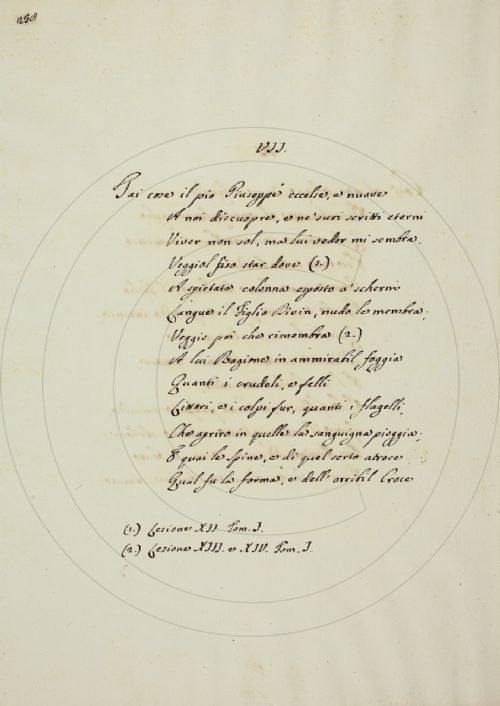 238
VII.
Tai cose il pio Giuseppe eccelse, e nuove
A noi discuopre, e ne' suoi scritti eterni
Viver non sol, ma lui veder mi sembra.
Veggiol fiso star dove (1.)
A spietata colonna esposto a' scherni
Langue il Figlio Divin, nudo le membra;
Veggio poi che rimembra (2.)
A lui Bagione in ammirabil foggia
Quanti i crudeli, e felli
Littori, e i colpi fur, quanti i flagelli,
Che apriro in quelle la sanguigna pioggia;
E quai le spine, e di quel serto atroce
Qual fu la forma, e dell' orribil Croce
(1.) Lezione XII. Tom. I.
(2.) Lezione XIII. e XIV. Tom. I.